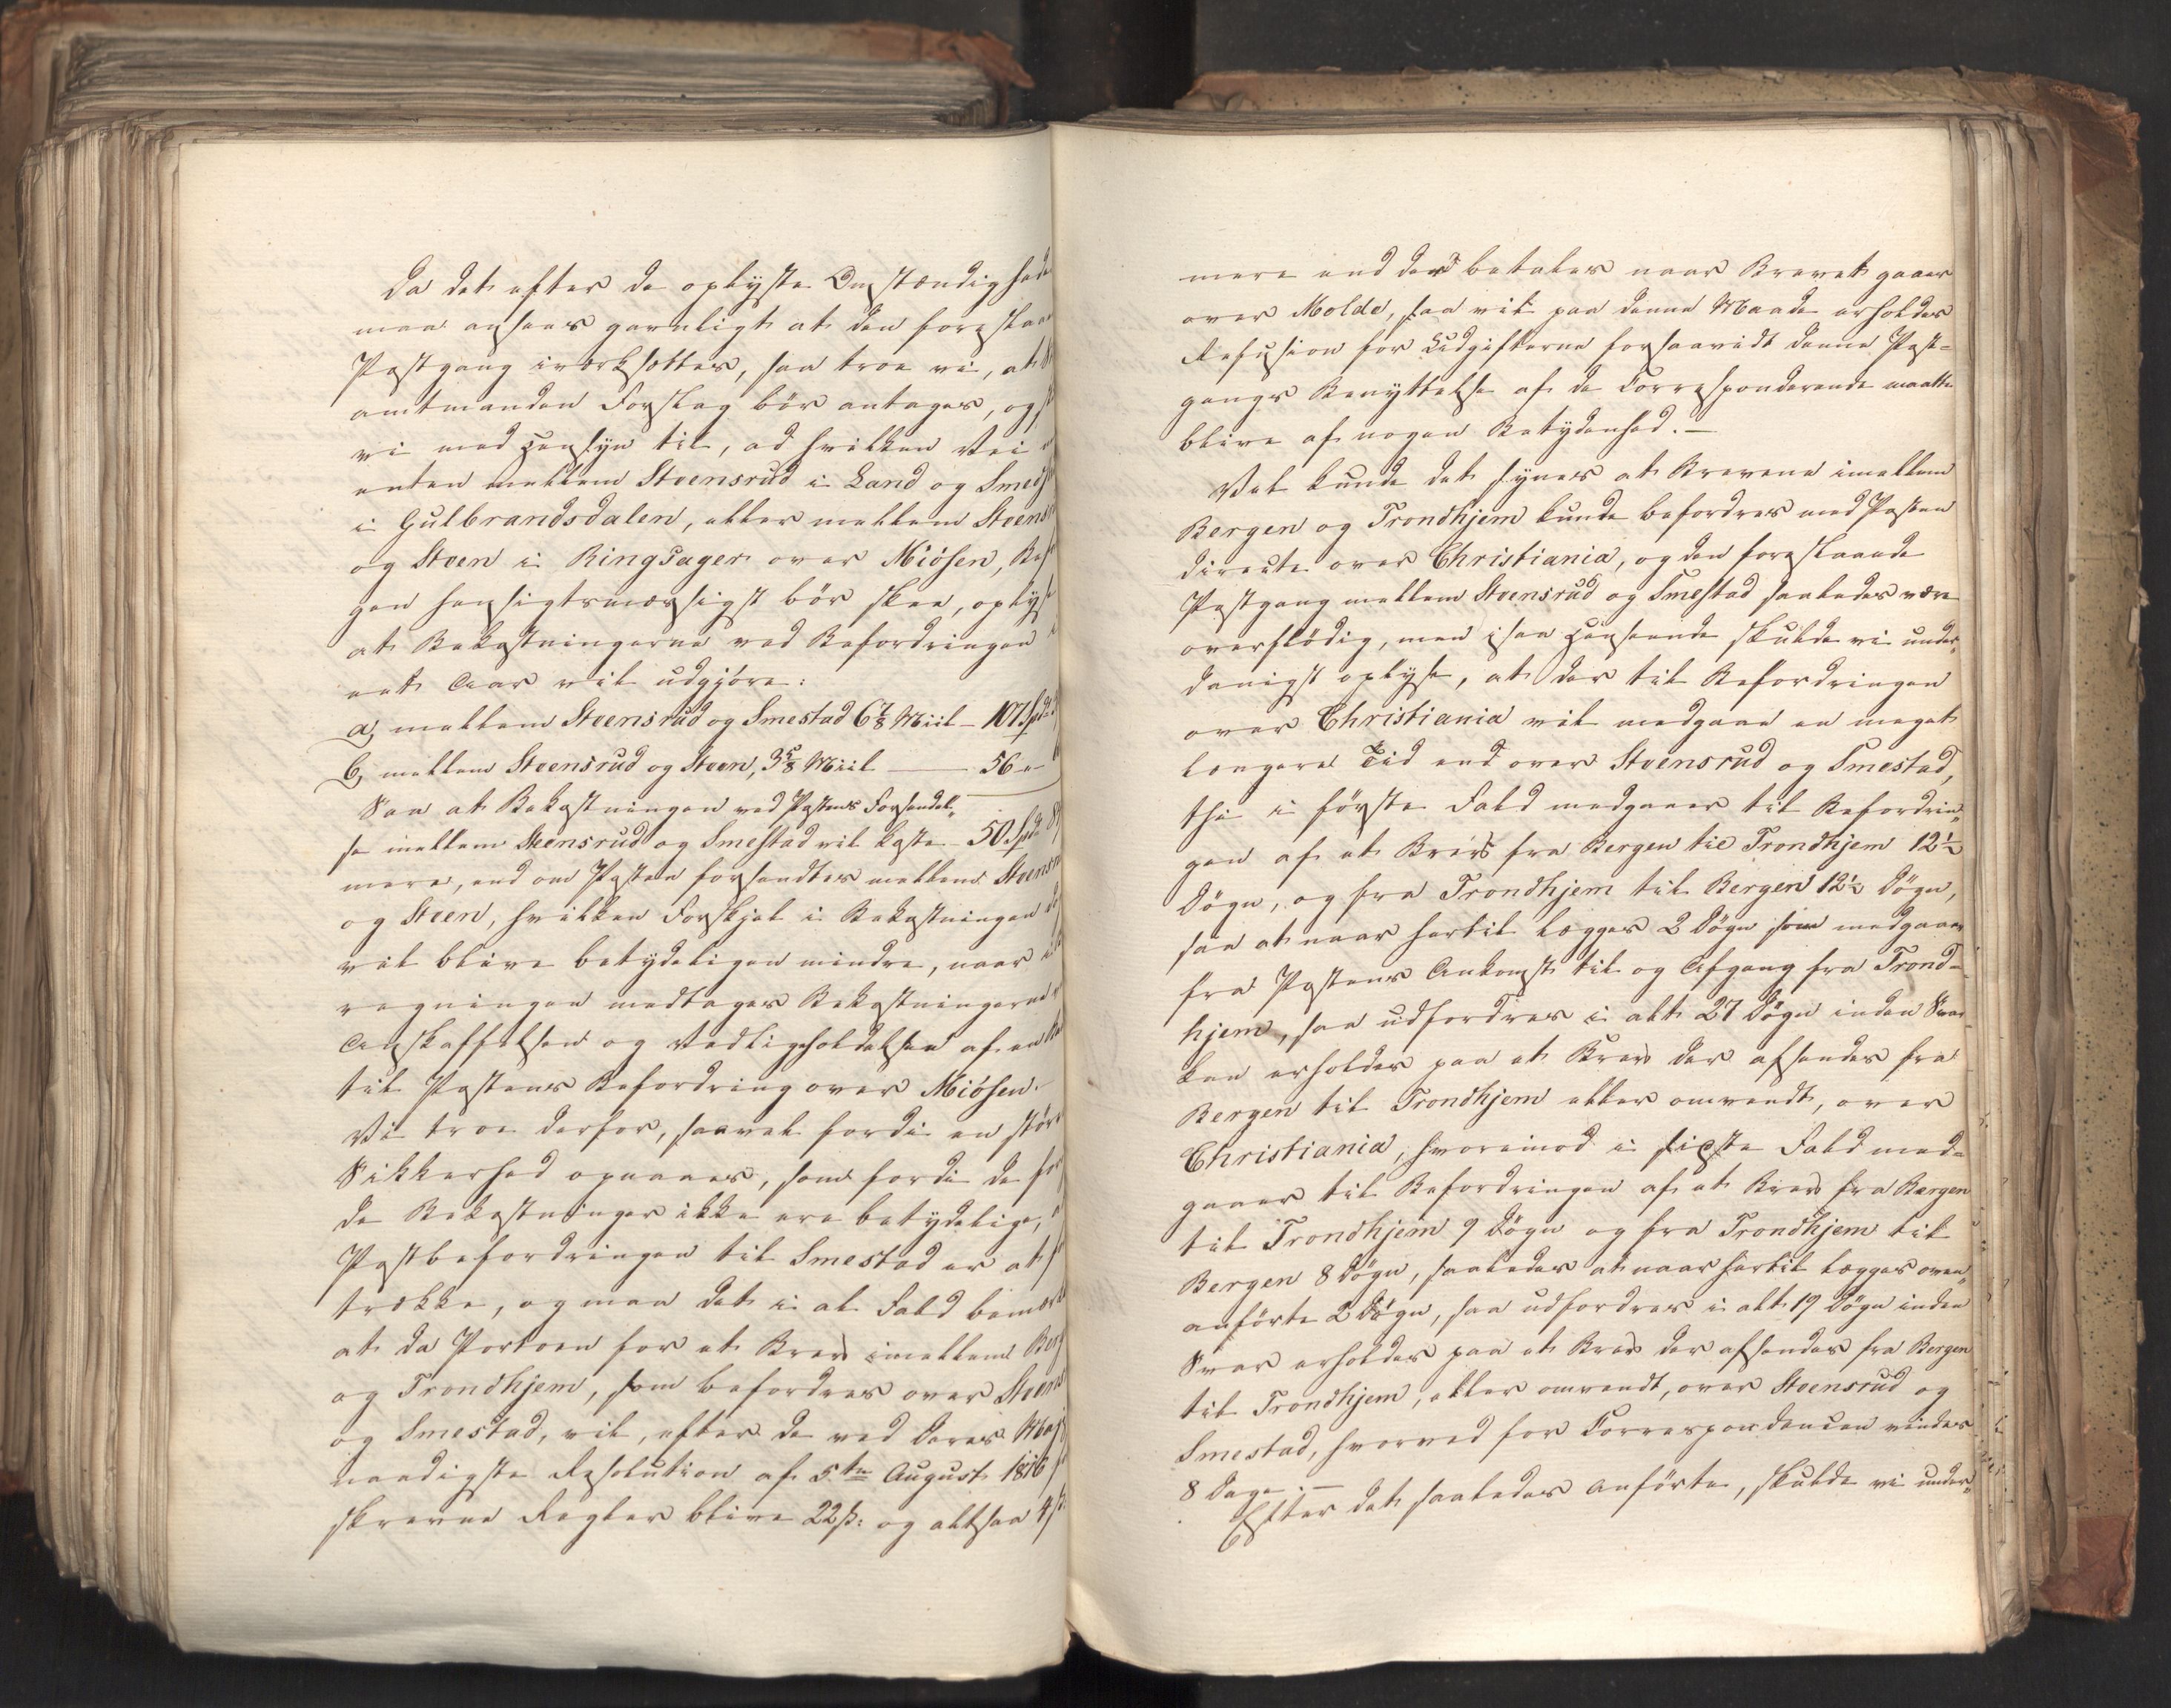 Da det efter de oplyste Omstændighede
maa ansees gavnligt at den foreslaae
Postgang iværksættes, saa troe vi, at
amtmanden Forslag bør antages, og
vi med Hensyn til, ad hvilken Vei
enten mellem Steensrud i Land og Smed
i Gulbrandsdalen, eller mellem Steens
og Steen i Ringsager over Miösen, Bef
gen hensigtsmæssigst bør skee, oplyse
at Bekostningerne ved Befordringen
eet Aar vil udgjøre:
a, mellem Steensrud og Smestad 6 7/8 Miil - 107 Spd
b, mellem Steensrud og Steen, 3 5/8 Miil — 56 "
Saa at Bekostningen ved Postens Forsendel„
se imellem Steensrud og Smestad vil koste - 50 Spd
mere, end om Posten forsendtes mellem Steensr
og Steen, hvilken Forskjel i Bekostningen
vil blive betydeligen mindre, naar i
regningen medtages Bekostningerne
Anskaffelsen og Vedligeholdelsen af en
til Postens Befordring over Miösen.
Vi troe derfor, saavel fordi en større
Sikkerhed opnaaes, som fordi de for
de Bekostninger ikke ere betydelige,
Postbefordringen til Smestad er at fo
trække, og maa det i al Fald bemærk
at da Portoen for et Brev imellem Berg
og Trondhjem, som befordres over Steens
og Smestad, vil, efter de ved Deres Maj
naadigste Resolution af 5te August 1816
skrevne Regler blive 22 ß: og altsaa 4 ß
mere end der betales naar Brevet gaaer
over Molde, saa vil paa denne Maade erholdes
Refusion for Udgifterne forsaavidt denne Post-
gangs Benyttelse af de Corresponderende maatte
blive af nogen Betydenhed. —
Vel kunde det synes at Brevene imellem
Bergen og Trondhjem kunde befordres med Posten
directe over Christiania, og den foreslaaede
Postgang mellem Steensrud og Smestad saaledes være
overflødig, men i saa Henseende skulde vi under„
danigst oplyse, at der til Befordringen
over Christiania vil medgaae en meget
længere Tid end over Steensrud og Smestad,
thi i første Fald medgaaer til Befordrin„
gen af et Brev fra Bergen til Trondhjem 12 1/2
Døgn, og fra Trondhjem til Bergen 12 1/2 Døgn,
saa at naar hertil lægges 2 Døgn som medgaaer
fra Postens Ankomst til og Afgang fra Trond-
hjem, saa udfordres i alt 27 Døgn inden Svar
kan erholdes paa et Brev der afsendes fra
Bergen til Trondhjem eller omvendt, over
Christiania, hvorimod i sidste Fald med-
gaaer til Befordringen af et Brev fra Bergen
til Trondhjem 9 Døgn og fra Trondhjem til
Bergen 8 Døgn, saaledes at naar hertil lægges oven„
anførte 2 Døgn, saa udfordres i alt 19 Døgn inden
Svar erholdes paa et Brev der afsendes fra Bergen
til Trondhjem, eller omvendt, over Steensrud og
Smestad, hvorved for Correspondencen vindes
8 Dage. —
Efter det saaledes anførte, skulde vi under„